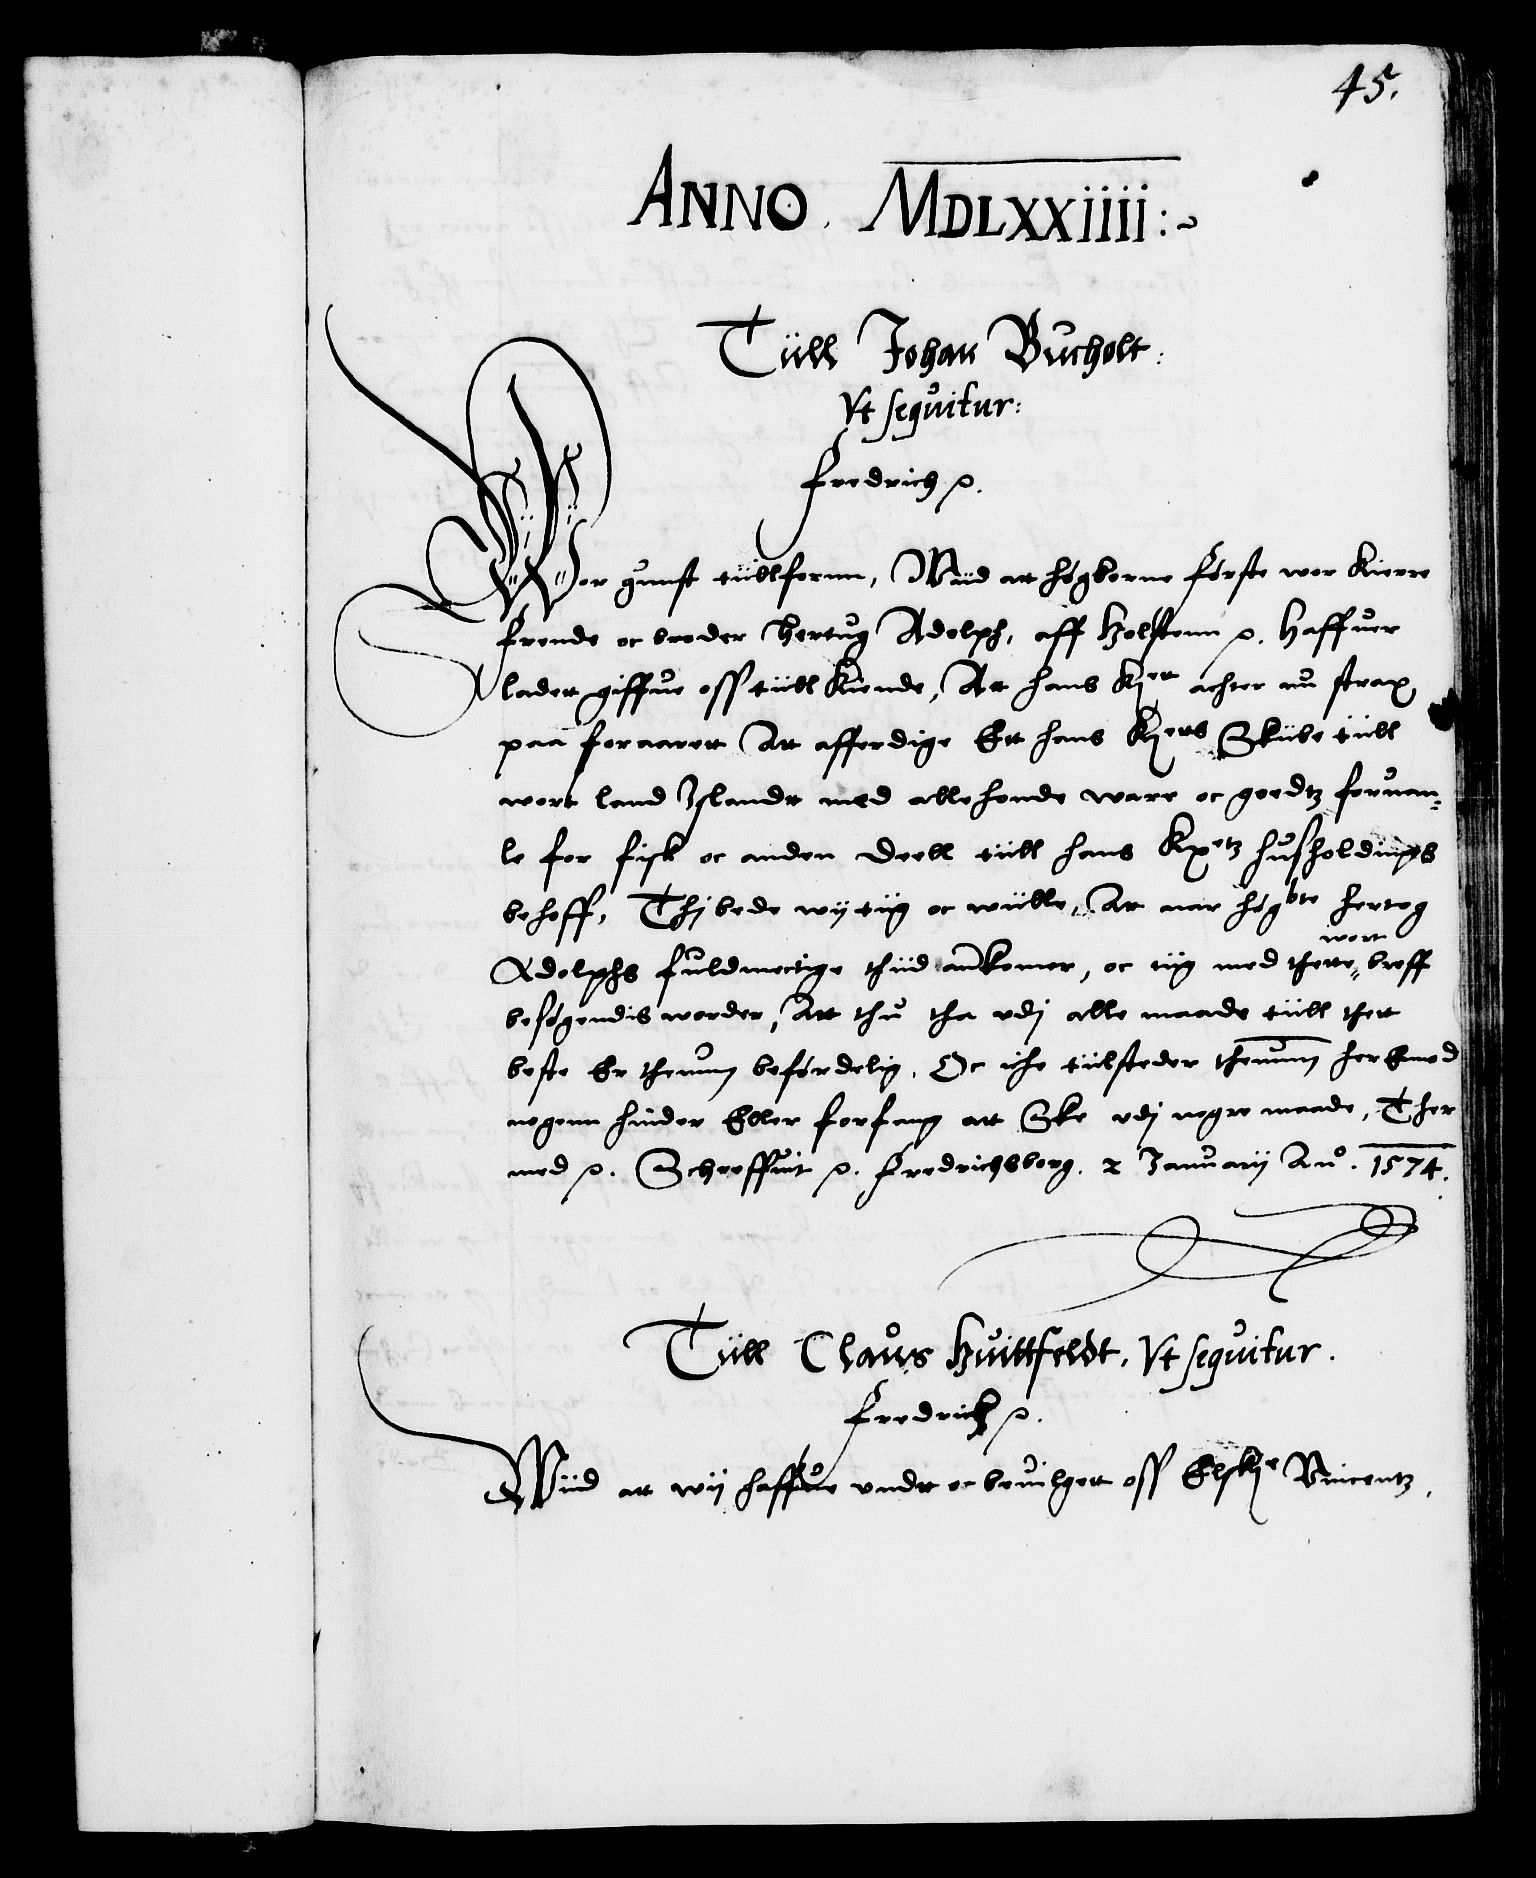 45.
ANNO. MDLXXiiii:~
Tiill Johan Bucholt:
Vt sequitur:
Fredrich ꝛ.
Wor gunst tiillfornn, Wiid att högborne förste wor kierre
frende oc broder Hertug Adolph, aff Holstenn ꝛ. Haffuer
ladett giffue oss tiill kiende, Att hans Kiett achter nu strax
paa foraarett Att afferdige Ett hans Kietts Skiibe tiill
wort land Islandt med allehonde ware oc goedtz foruan=
le for fisk oc anden deell tiill hans Kxetz husholdings
behoff, Thj bede wij tiig oc wiille, At nar högbte hertog
Adolphs fuldmectige thiid ankomer, oc tiig med thette wort breff
besögendis worder, Att thu tha vdj alle maade tiill thett
beste Er thenum befördelig. Oc iche tiilsteder thenum her Emod
nogenn hinder Eller forfang att Ske vdj nogre maade, Ther
med ꝛ. Schreffuit ꝛ. Fredrichsborg. 2 Januarij Ano. 1574.
Tiill Claus Huittfeldt, Vt sequitur.
Fredrich ꝛ.
Wiid att wij haffue vndt oc beuilgett oss Elskle Vincentz,